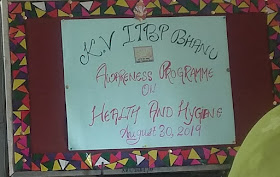 KV ITBP BHANU
AWARENESS PROGRAMME
ON
HEALTH AND HYGIENE
August 30, 2019